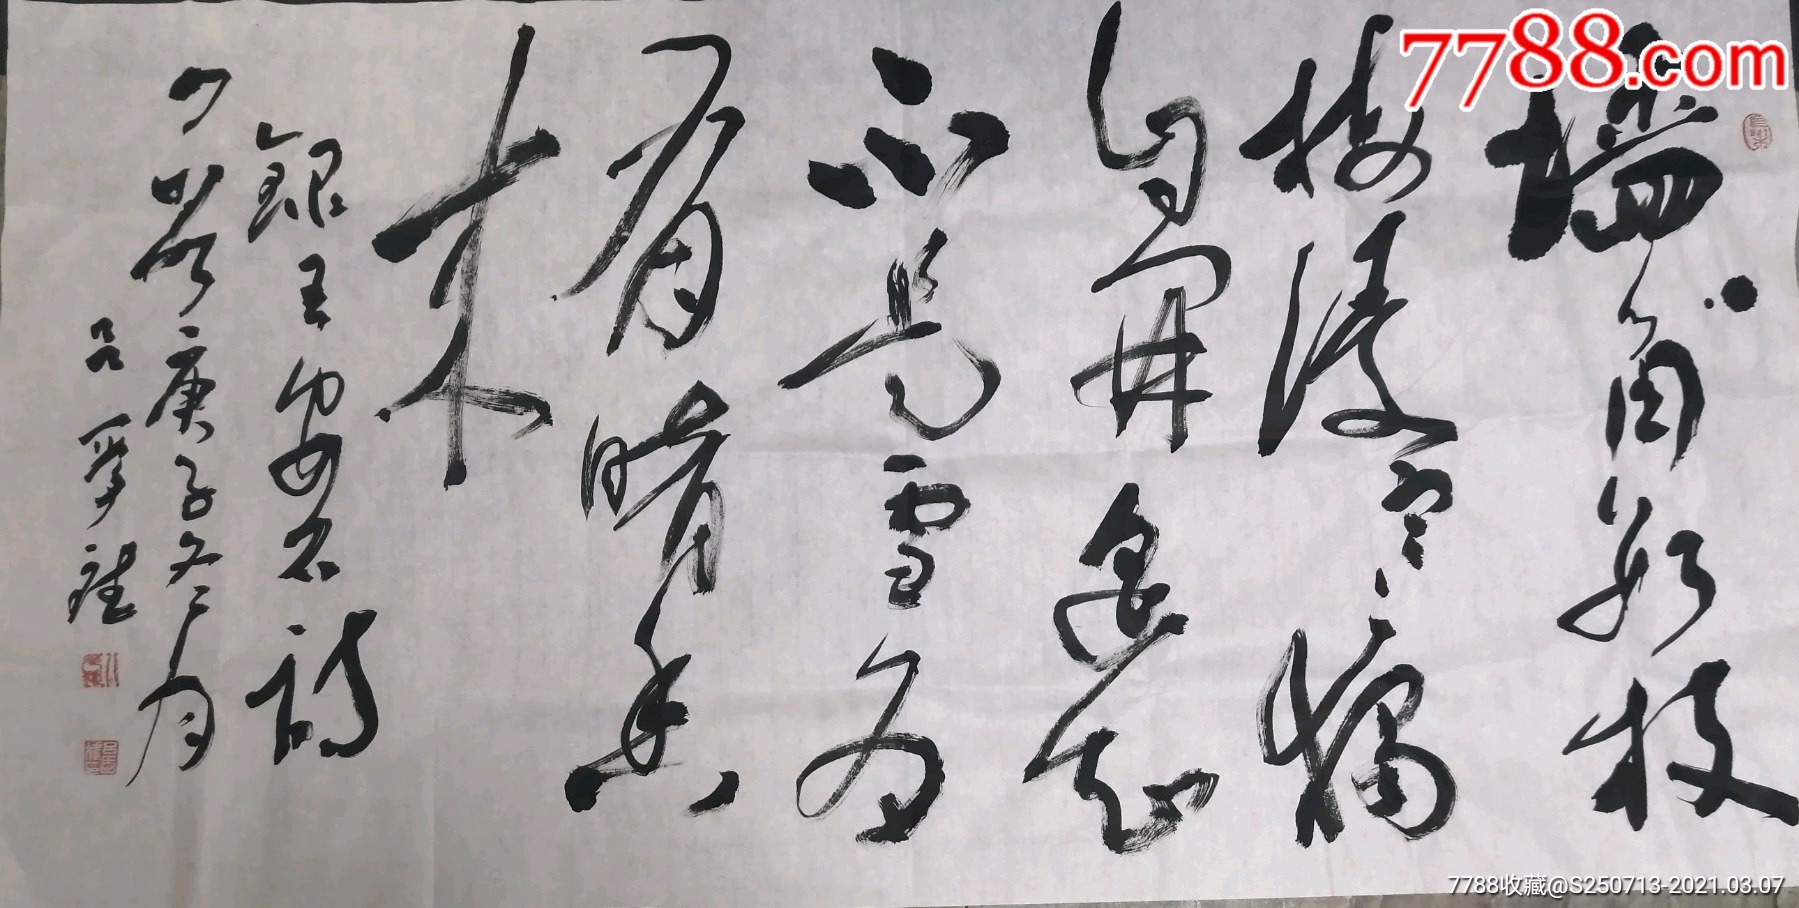 墙角数枝
梅凌寒独
自開遥知
不是雪为
有暗香
来
録王安石诗
庚子冬月
吕
7788.com
7788收藏@S250713-2021.03.07